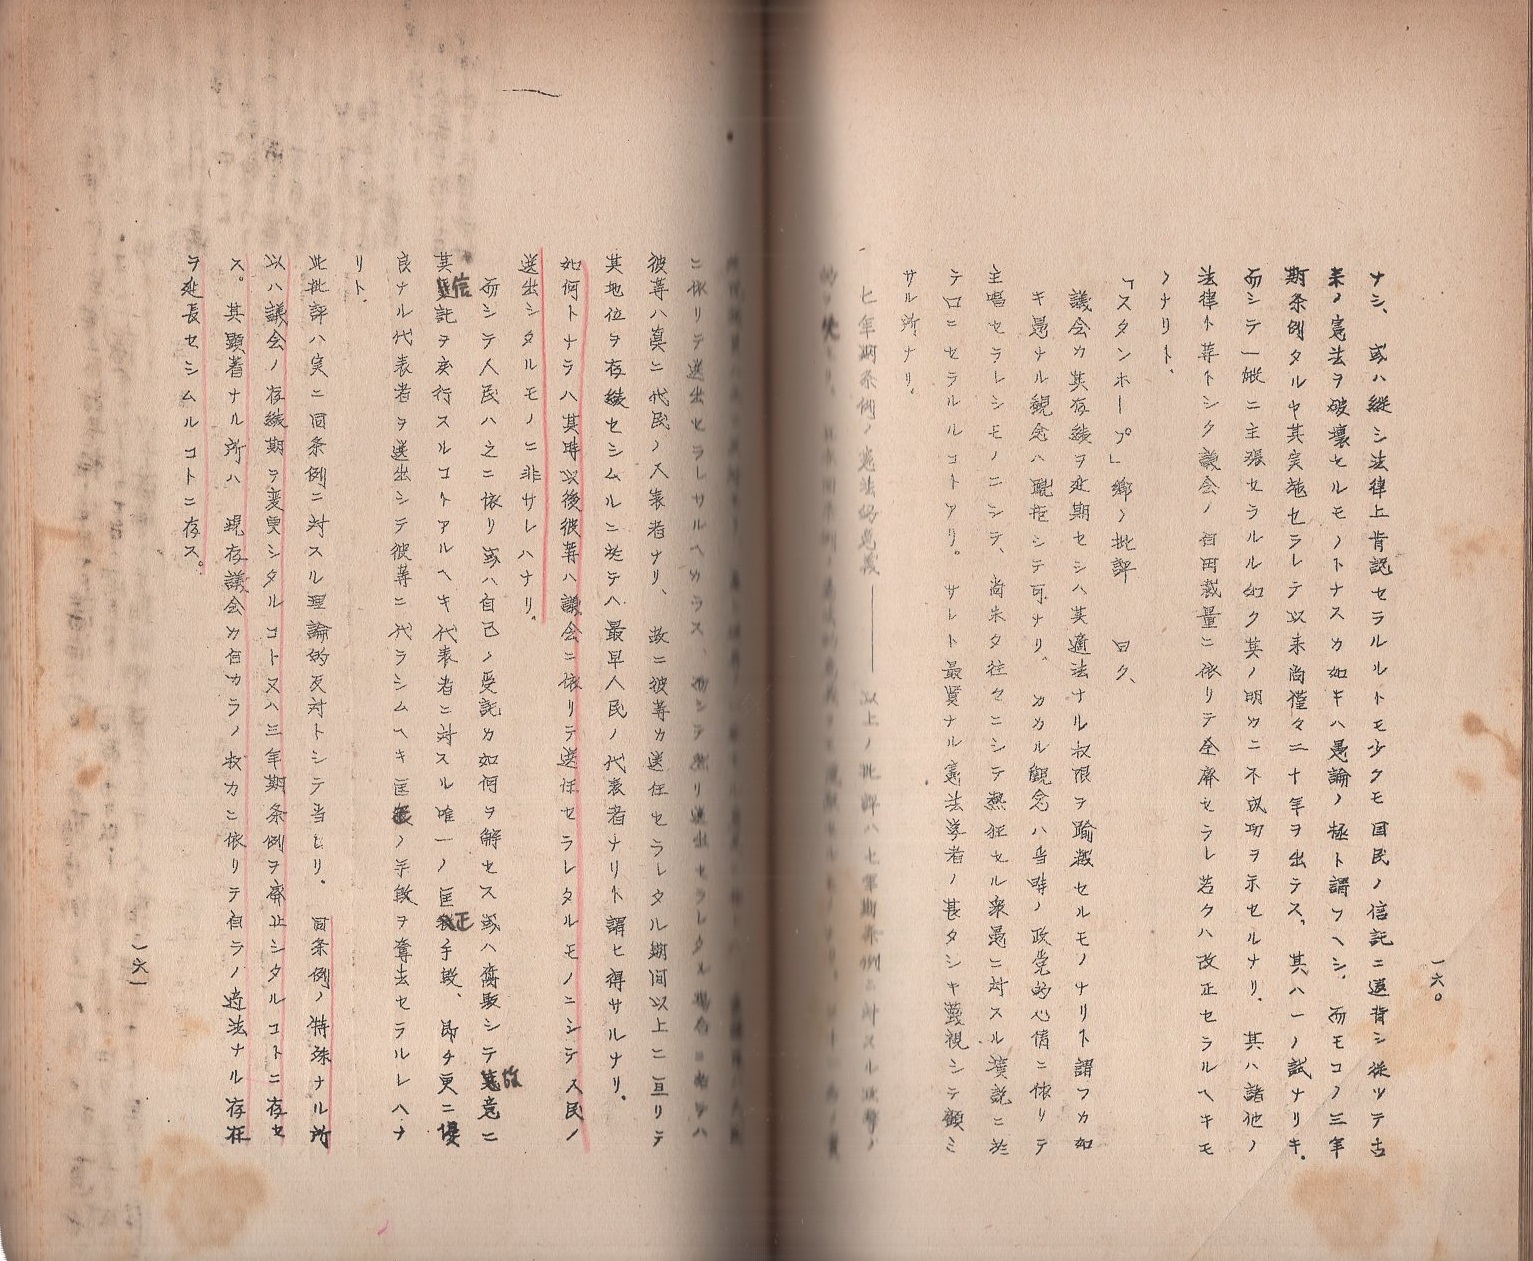 一六〇
ナシ、或ハ縦シ法律上肯認セラルルトモ少クモ国民ノ信託ニ違背シ従ツテ古
来ノ憲法ヲ破壊セルモノトナスカ如キハ愚論ノ極ト謂フヘシ、而モコノ三年
期条例タルヤ其実施セラレテ以来尚僅々二十年ヲ出テス、其ハ一ノ試ナリキ.
而シテ一娯ニ主張セラルル如ク其ノ明カニ不成功ヲ示セルナリ、其ハ諸他ノ
法律ト等トシク議会ノ自由裁量ニ依リテ全廃セラレ若クハ改正セラルヘキモ
ノナリト、
「スタンホープ」郷ノ批評 曰ク、
議会カ其存続ヲ延期セシハ其適法ナル权限ヲ踰越セルモノナリト謂フカ如
キ愚ナル観念ハ排拒シテ可ナリ、カカル観念ハ当時ノ政党的心情ニ依リテ
主唱セラレシモノニシテ、尚未タ往々ニシテ熱狂セル衆愚ニ対スル演説ニ於
テ口ニセラルルコトアリ。サレト最賢ナル憲法学者ノ甚タシキ蔑視シテ顧ミ
サル所ナリ.
七年期条例ノ憲法的意義 ―― 以上ノ批評ハ七年期条例ニ対スル攻撃ノ
ニ依リテ選出セラレサルヘカラス、
彼等ハ真ニ代民ノ人表者ナリ、故ニ彼等カ選任セラレタル期间以上ニ亘リテ
其地位ヲ存続セシムルニ於テハ最早人民ノ代表者ナリト謂ヒ得サルナリ.
如何トナラハ其時以後彼等ハ議会ニ依リテ選任セラレタルモノニシテ人民ノ
選出シタルモノニ非サレハナリ.
而シテ人民ハ之ニ依リ或ハ自己ノ受託カ如何ヲ解セス或ハ腐敗シテ故意ニ
其信託ヲ実行スルコトアルヘキ代表者ニ対スル唯一ノ匡正手段、即チ更ニ優
良ナル代表者ヲ選出シテ彼等ニ代ラシムヘキ匡救ノ手段ヲ奪去セラルレハナ
リト.
此批評ハ実ニ同条例ニ対スル理論的反対トシテ当レリ. 同条例ノ特殊ナル所
以ハ議会ノ存続期ヲ変更シタルコト又ハ三年期条例ヲ廃止シタルコトニ存セ
ス。其顕著ナル所ハ 現存議会カ自カラノ权力ニ依リテ自ラノ適法ナル存在
ヲ延長セシムルコトニ存ス。
一六一